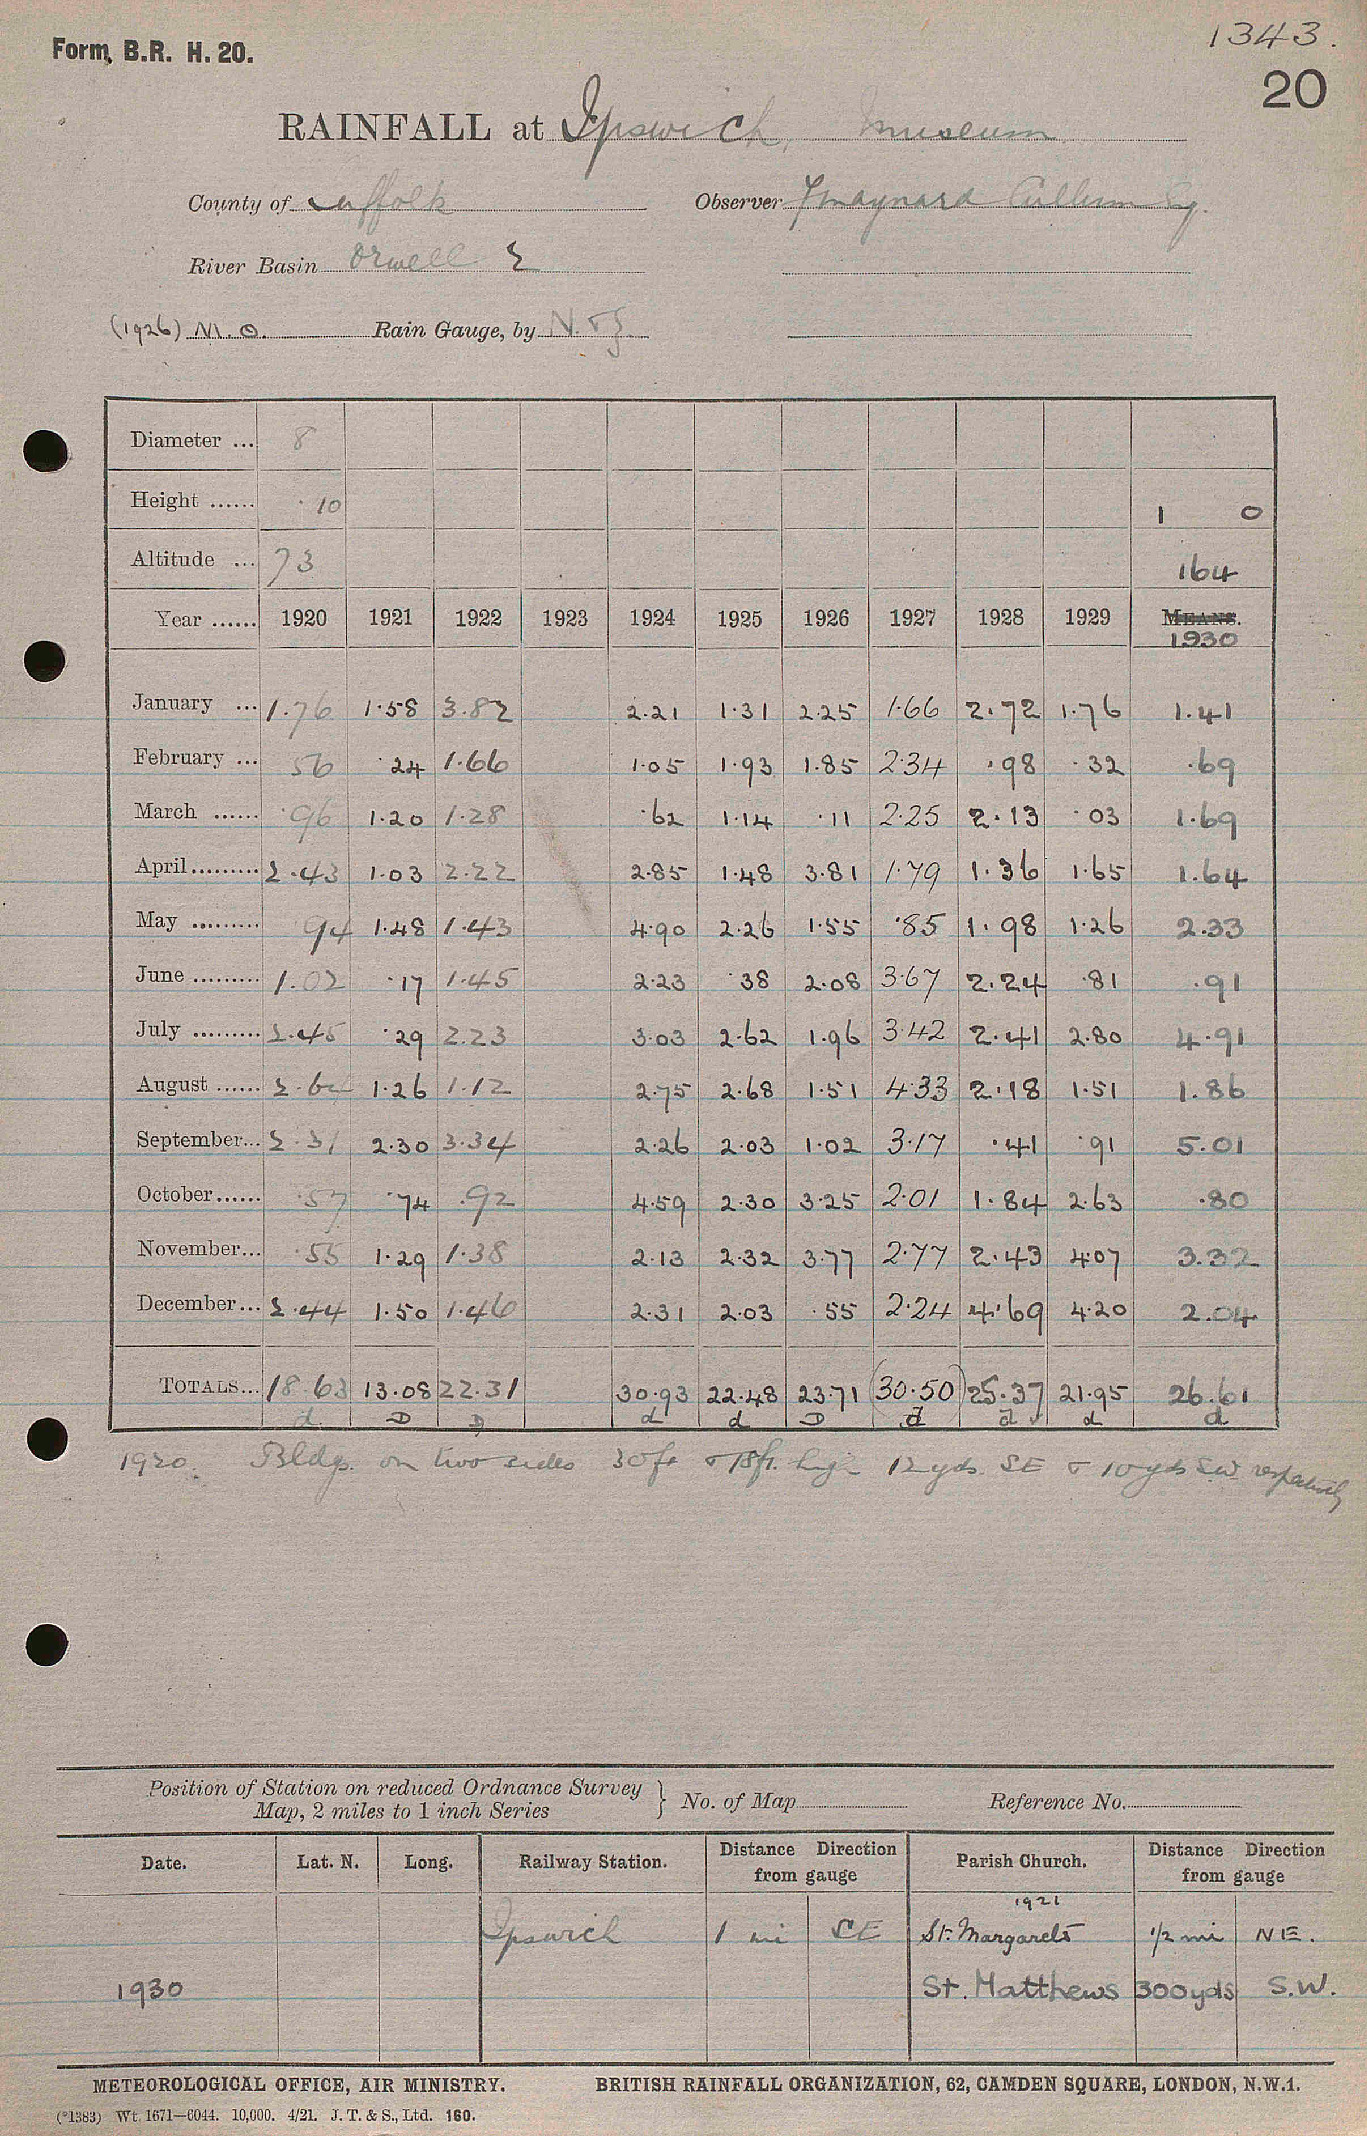 1343.
Form B.R. H. 20.
20
RAINFALL at Ipswich, Museum
County of Suffolk Observer Maynard Esq.
River Basin Orwell Σ
(1926) M.O. Rain Gauge, by N. & Z
Diameter ... 8
Height ...... ·10 1 0
Altitude ... 73 164
Year ...... 1920 1921 1922 1923 1924 1925 1926 1927 1928 1929 MEANS.
1930
January ... 1.76 1.58 3.82 2.21 1.31 2.25 1.66 2.72 1.76 1.41
February ... 56 .24 1.66 1.05 1.93 1.85 2.34 .98 .32 .69
March ...... .96 1.20 1.28 .62 1.14 .11 2.25 2.13 .03 1.69
April ......... 2.43 1.03 2.22 2.85 1.48 3.81 1.79 1.36 1.65 1.64
May ......... 94 1.48 1.43 4.90 2.26 1.55 .85 1.98 1.26 2.33
June ......... 1.02 .17 1.45 2.23 .38 2.08 3.67 2.24 .81 .91
July ......... 2.45 .29 2.23 3.03 2.62 1.96 3.42 2.41 2.80 4.91
August ...... 2.62 1.26 1.12 2.75 2.68 1.51 4.33 2.18 1.51 1.86
September... 2.31 2.30 3.34 2.26 2.03 1.02 3.17 .41 .91 5.01
October ...... .57 .74 .92 4.59 2.30 3.25 2.01 1.84 2.63 .80
November... .55 1.29 1.38 2.13 2.32 3.77 2.77 2.43 4.07 3.32
December... 2.44 1.50 1.46 2.31 2.03 .55 2.24 4.69 4.20 2.04
TOTALS... 18.63 13.08 22.31 30.93 22.48 23.71 (30.50) 25.37 21.95 26.61
d D D d d D d d d d
1920. Bldgs. on two sides 30ft & 18ft. high 12yds. SE & 10yds SW respectively
Position of Station on reduced Ordnance Survey
Map, 2 miles to 1 inch Series } No. of Map Reference No.
Date. Lat. N. Long. Railway Station. Distance Direction from gauge Parish Church. Distance Direction from gauge
1921
Ipswich 1 mi SE St. Margarets 1/2 mi NE.
1930 St. Matthews 300yds S.W.
METEOROLOGICAL OFFICE, AIR MINISTRY. BRITISH RAINFALL ORGANIZATION, 62, CAMDEN SQUARE, LONDON, N.W.1.
(*1383) Wt. 1671—6044. 10,000. 4/21. J. T. & S., Ltd. 160.